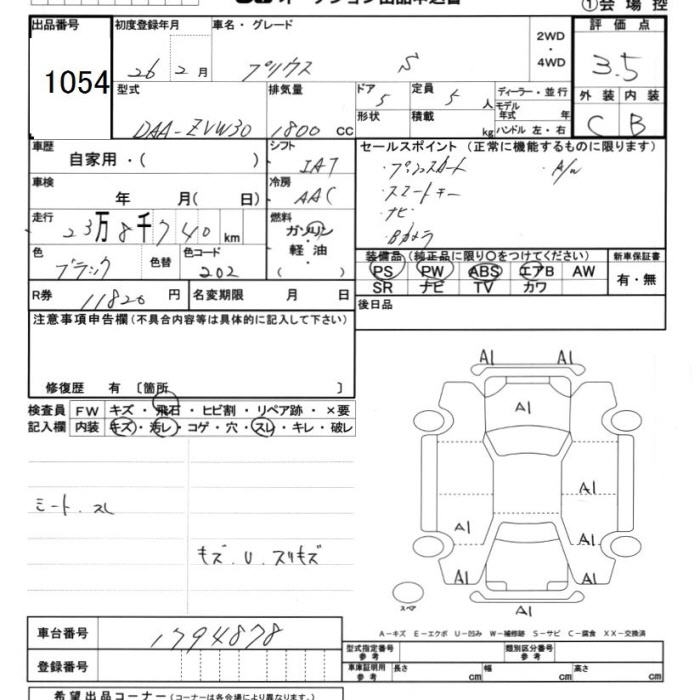 ①会場控
出品番号 初度登録年月 車名・グレード 2WD ・ 4WD 評価点
1054 26 2月 プリウス S 3.5
型式 排気量 ドア 定員 ディーラー・並行 外装 内装
DAA-ZVW30 1800 cc 5 5 人 モデル年式 年 C B
形状 積載 kg ハンドル 左・右
車歴 シフト セールスポイント (正常に機能するものに限ります)
自家用・( ) IAT ・プッシュスタート ・A/W
車検 冷房 ・スマートキー
年 月( 日) AAC ・ナビ
走行 燃料 ・Bカメラ
23万8千740 km ガソリン
色 色替 色コード 軽油 装備品 (純正品に限り○をつけてください) 新車保証書
ブラック 202 ( ) PS PW ABS エアB AW 有・無
SR ナビ TV カワ
R券 11820 円 名変期限 月 日 後日品
注意事項申告欄(不具合内容等は具体的に記入して下さい)
修復歴 有 〔箇所 〕
検査員 FW キズ・飛石・ヒビ割・リペア跡・×要
記入欄 内装 キズ・汚レ・コゲ・穴・スレ・キレ・破レ
シート、スレ
キズ、U、スリキズ
A1 A1
A1
A1
A1 A1
A1 A1
A1
スペア
A-キズ E-エクボ U-凹み W-補修跡 S-サビ C-腐食 XX-交換済
車台番号 1794878
登録番号
型式指定番号 参考 類別区分番号 参考
車庫証明用 参考 長さ cm 幅 cm 高さ cm
希望出品コーナー(コーナーは各会場により異なります。)